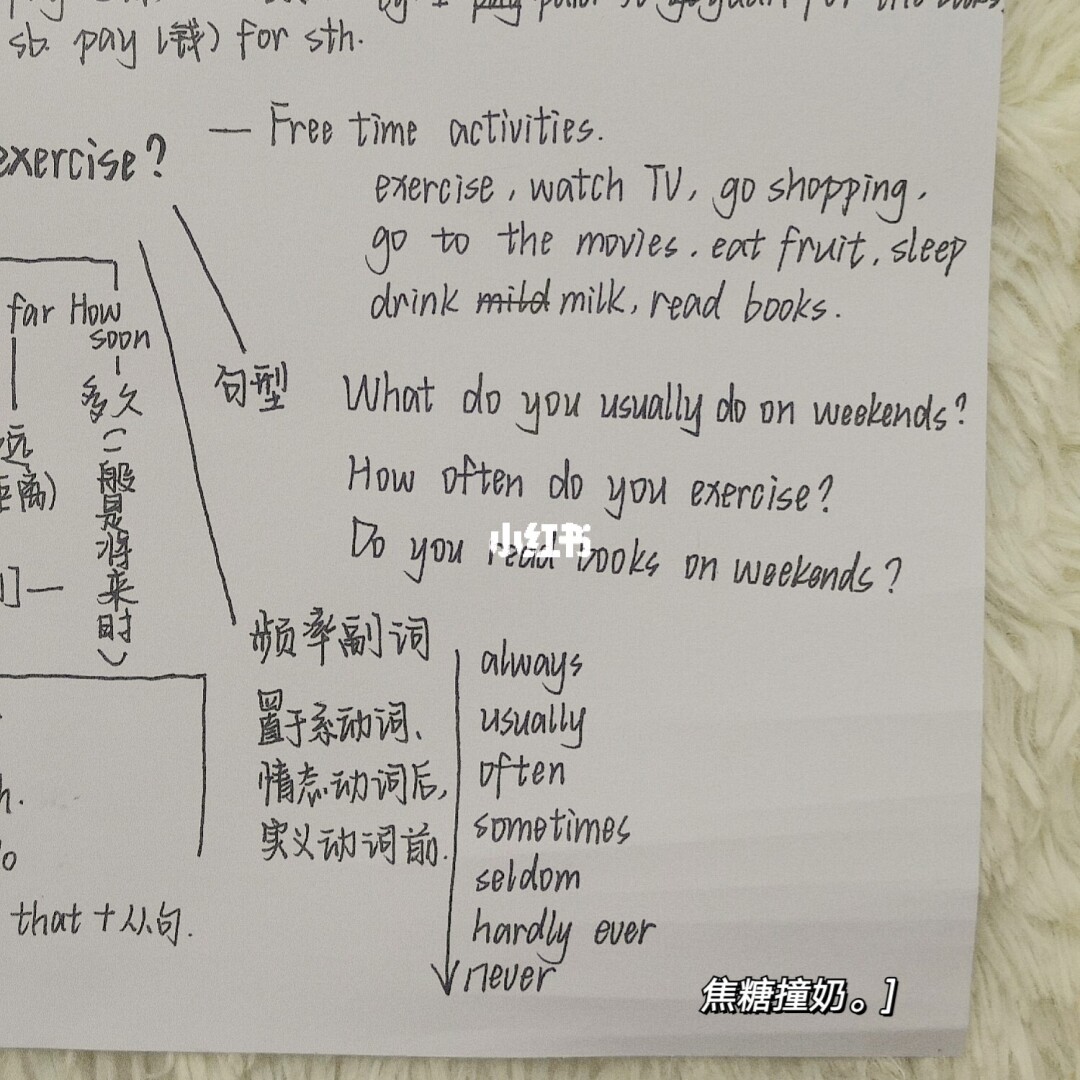 sb. pay (钱) for sth.
exercise?
— Free time activities.
exercise, watch TV, go shopping,
go to the movies, eat fruit, sleep
drink mild milk, read books.
far How
soon
多久(一般是将来时)
远
距离)
句型
What do you usually do on weekends?
How often do you exercise?
Do you read books on weekends?
小红书
频率副词
置于系动词、
情态动词后,
实义动词前.
always
usually
often
sometimes
seldom
hardly ever
never
that + 从句.
焦糖撞奶。]